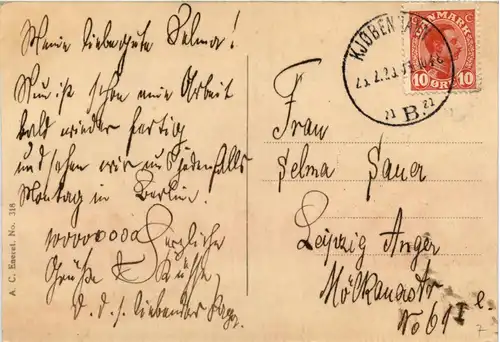 Meine liebe gute Selma!
Nun ist schon meine Arbeit
bald wieder fertig
und sehen wir uns jedenfalls
Montag in Berlin.
10000000 Herzliche
Grüße & Küsse,
d. d. s. liebender
A. C. Eneret. No. 318
KJØBENHAVN
B.
21 21
DANMARK
10 ØRE 10
Frau
Selma Sauer
Leipzig Anger
Mölkauerstr
No 61 I l.
7